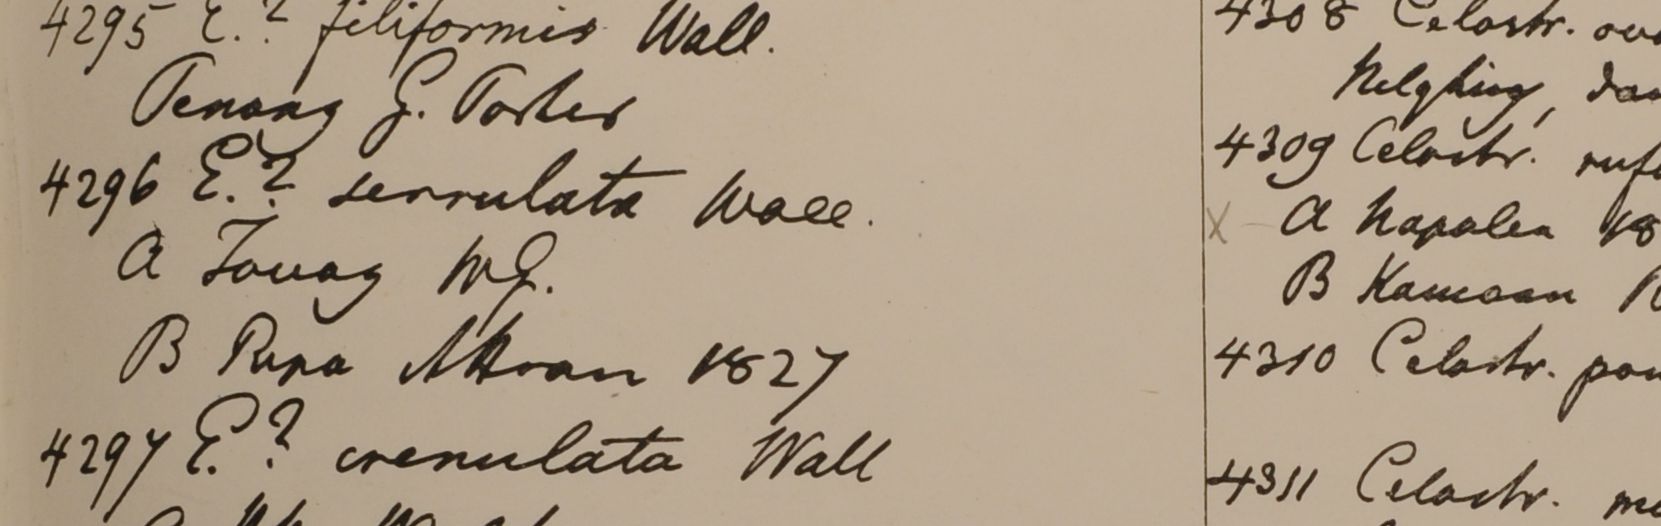 4295 E.? filiformis Wall.
Penang G. Porter
4296 E.? serrulata Wall.
A Tavoy W.G.
B Ripa Attran 1827
4297 E.? crenulata Wall
4308 Celastr.
4309 Celastr. rufa
X A Napalia 18
B Kamaon R
4310 Celastr. pau
4311 Celastr.